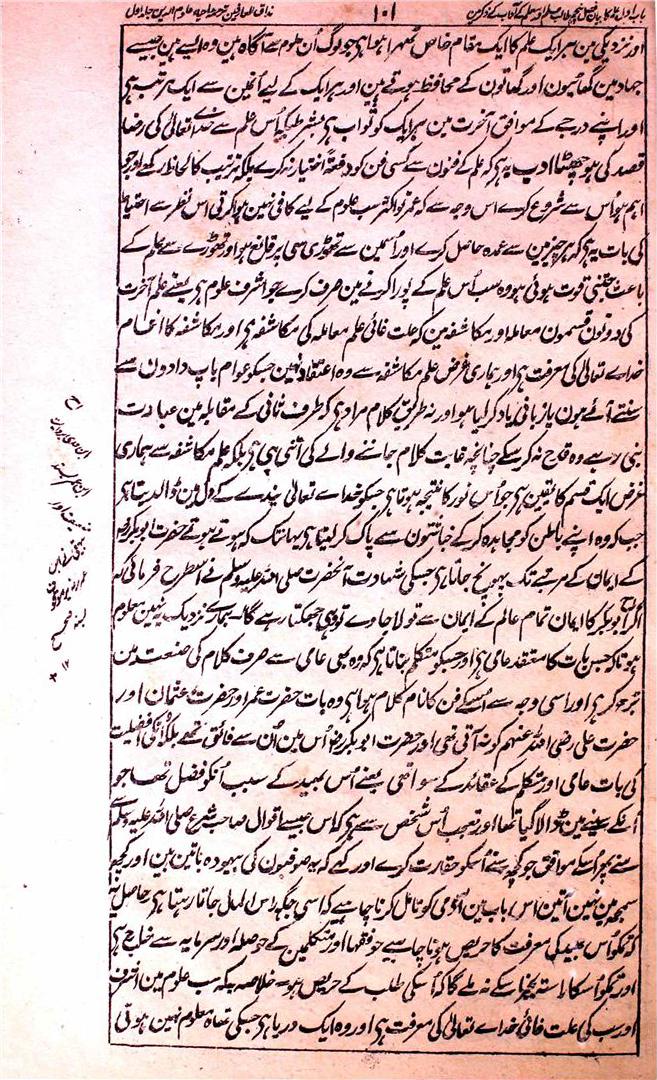 باب اول علم کا بیان فصل پنجم طالب علم اور معلم کے آداب کے ذکر مین ۱۰۱ مذاق العارفین ترجمہ احیاء علوم الدین جلد اول
اور نزدیکی مین ہر ایک علم کا ایک مقام خاص ٹھہرا ہوا ہی جو لوگ اُن علوم سے آگاہ ہین وہ ایسے ہین جیسے
جہاد مین گھاٹیون اور گھاتون کے محافظ ہوتے ہین اور ہر ایک کے لیے اُنمین سے ایک مرتبہ ہی
اور اپنے درجے کے موافق آخرت مین ہر ایک کو ثواب ہی بشرطیکہ اُس علم سے خداے تعالیٰ کی رضا
قصد کی ہو چھٹا ادب یہ ہی کہ علم کے فنون سے کسی فن کو دفعۃً اختیار نہ کرے بلکہ ترتیب کا لحاظ رکھے اور جو
اہم ہو اُس سے شروع کرے اس وجہ سے کہ عمر تو اکثر سب علوم کے لیے کافی نہین ہوا کرتی اس نظر سے احتیاط
کی بات یہ ہی کہ ہر چیز مین سے عمدہ حاصل کرے اور اُسمین سے تھوڑی سی پر قانع ہو اور تھوڑے سے علم کے
باعث جتنی قوت ہوئی ہو وہ سب اُس علم کے پورا کرنے مین صرف کرے جو اشرف علوم ہی یعنے علم آخرت
کی دونون قسمون معاملہ اور مکاشفہ مین کہ علت غائی علم معاملہ کی مکاشفہ ہی اور مکاشفہ کا انجام
خداے تعالیٰ کی معرفت ہی اور ہماری غرض علم مکاشفہ سے وہ اعتقاد نہین جسکو عوام باپ دادون سے
سنتے آئے ہون یا زبانی یاد کر لیا ہو اور نہ طریق کلام مراد ہی کہ طرف ثانی کے مقابلہ مین عبارت
بنی رہے وہ قدح نہ کر سکے چنانچہ غایت کلام جاننے والے کی اتنی ہی ہی بلکہ علم مکاشفہ سے ہماری
غرض ایک قسم کا یقین ہی جو اُس نور کا نتیجہ ہوتا ہی جسکو خداے تعالیٰ بندے کے دل مین ڈال دیتا ہی
جب کہ وہ اپنے باطن کو مجاہدہ کر کے خباثتون سے پاک کر لیتا ہی یہانتک کہ ہوتے ہوتے حضرت ابوبکر رضہ
کے ایمان کے مرتبے تک پہونچ جاتا ہی جسکی شہادت آنحضرت صلی اللہ علیہ وسلم نے اسطرح فرمائی کہ
اگر ابوبکر کا ایمان تمام عالم کے ایمان سے تولا جاوے تو وہی جھکتا رہے گا۔ ہمارے نزدیک یہ نہین معلوم
ہوتا کہ جس بات کا معتقد عامی ہی اور جسکو متکلم بناتا ہی کہ وہ بھی عامی سے صرف کلام کی صنعت مین
بڑھکر ہی اور اسی وجہ سے اُسکے فن کا نام کلام ہوا ہی وہ بات حضرت عمر اور حضرت عثمان اور
حضرت علی رضی اللہ عنہم کو نہ آتی تھی اور حضرت ابوبکر رضہ اُس مین اُن سے فائق تھے بلکہ اُنکی افضلیت
کی بات عامی اور متکلم کے عقائد کے سوا تھی یعنے اُس بھید کے سبب اُنکو فضل تھا جو
اُنکے سینے مین ڈالا گیا تھا اور تعجب اُس شخص سے ہی کہ اس جیسے اقوال صاحب شرع صلی اللہ علیہ وسلم سے
سنے پھر اُسکے موافق جو کچھ سنے اُسکو حقارت کرے اور کہے کہ یہ صوفیون کی بیہودہ باتین ہین اور کچھ
سمجھ مین نہین آتین اس باب مین آدمی کو تامل کرنا چاہیے کہ اسی جگہ راس المال جاتا رہتا ہی حاصل یہ
کہ تمکو اُس بھید کی معرفت کا حریص ہونا چاہیے جو فقہا اور متکلمین کے حوصلہ اور سرمایہ سے خارج ہی
اور تمکو اُسکا راستہ بجز اسکے نہ ملے گا کہ اُسکی طلب کے حریص ہو۔ خلاصہ یہ کہ سب علوم مین اشرف
اور سب کی علت غائی خداے تعالیٰ کی معرفت ہی اور وہ ایک دریا ہی جسکی تھاہ معلوم نہین ہوتی